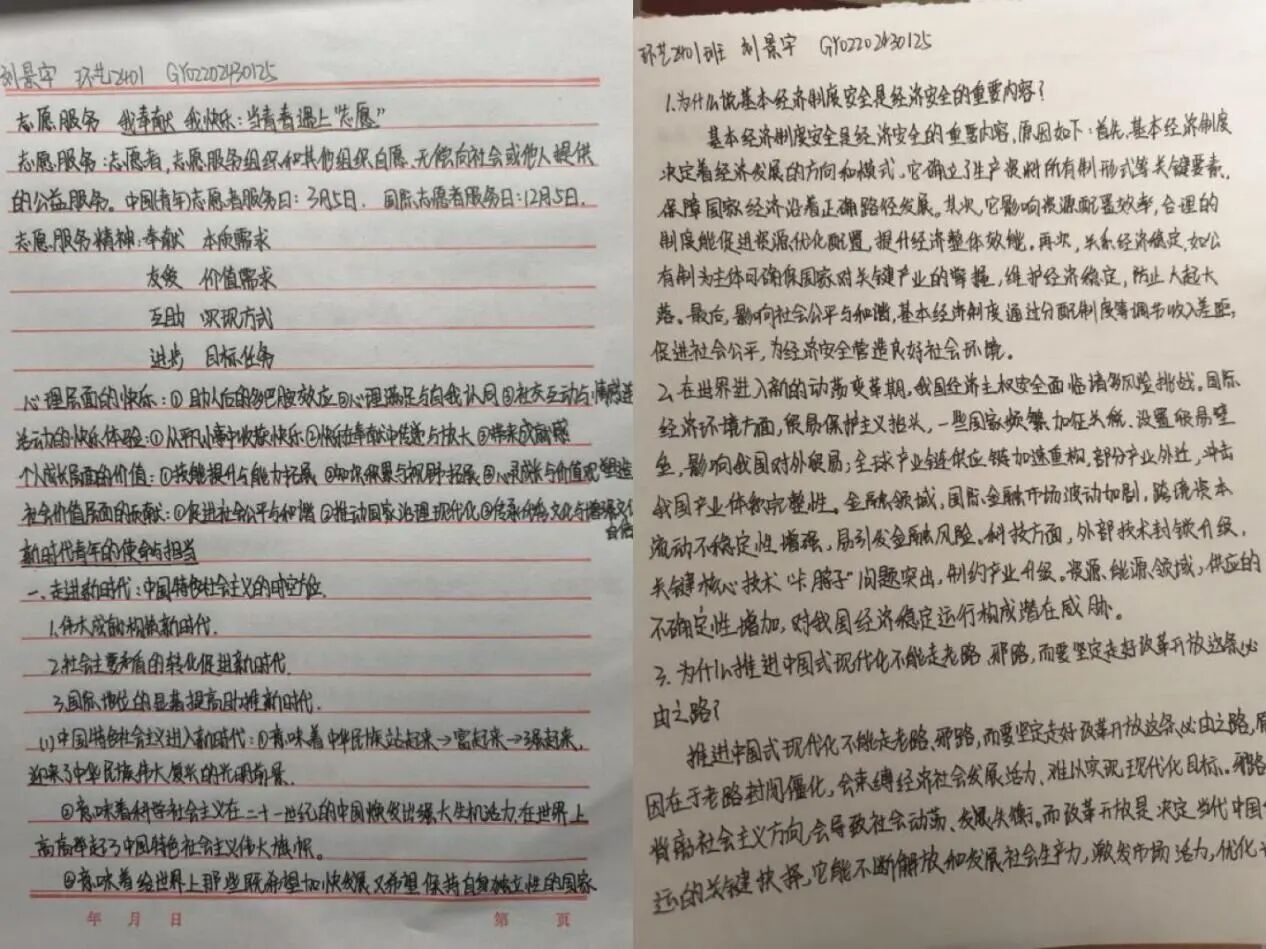 刘景宇 环艺2401 GY02202430125
志愿服务 我奉献 我快乐：当青春遇上“志愿”
志愿服务：志愿者，志愿服务组织和其他组织自愿、无偿向社会或他人提供
的公益服务。中国(青年)志愿者服务日：3月5日. 国际志愿者服务日：12月5日.
志愿服务精神：奉献 本质需求
友爱 价值需求
互助 实现方式
进步 目标任务
心理层面的快乐：①助人后的多巴胺效应②心理满足与自我认同③社交互动与情感连
活动的快乐体验：①从平凡小事中收获快乐②快乐在奉献中传递与放大③带来成就感
个人成长层面的价值：①技能提升与能力拓展②知识积累与视野拓展③心灵成长与价值观塑造
社会价值层面的贡献：①促进社会公平与和谐②推动国家治理现代化③传承传统文化与增强文化
自信
新时代青年的使命与担当
一、走进新时代：中国特色社会主义的时空方位.
1.伟大成就构筑新时代.
2.社会主要矛盾的转化促进新时代.
3.国际地位的显著提高助推新时代.
(1)中国特色社会主义进入新时代：①意味着中华民族站起来→富起来→强起来,
迎来了中华民族伟大复兴的光明前景.
②意味着科学社会主义在二十一世纪的中国焕发出强大生机活力,在世界上
高高举起了中国特色社会主义伟大旗帜。
③意味着给世界上那些既希望加快发展又希望保持自身独立性的国家
年 月 日 第 页
环艺2401班 刘景宇 GY02202430125
1.为什么说基本经济制度安全是经济安全的重要内容?
基本经济制度安全是经济安全的重要内容,原因如下：首先,基本经济制度
决定着经济发展的方向和模式。它确立了生产资料所有制形式等关键要素,
保障国家经济沿着正确路径发展。其次,它影响资源配置效率,合理的
制度能促进资源优化配置,提升经济整体效能。再次,关系经济稳定,如公
有制为主体可确保国家对关键产业的掌握,维护经济稳定,防止大起大
落。最后,影响社会公平与和谐,基本经济制度通过分配制度等调节收入差距,
促进社会公平,为经济安全营造良好社会环境。
2、在世界进入新的动荡变革期,我国经济主权安全面临诸多风险挑战。国际
经济环境方面,贸易保护主义抬头,一些国家频繁加征关税、设置贸易壁
垒,影响我国对外贸易;全球产业链供应链加速重构,部分产业外迁,冲击
我国产业体系完整性。金融领域,国际金融市场波动加剧,跨境资本
流动不稳定性增强,易引发金融风险。科技方面,外部技术封锁升级,
关键核心技术“卡脖子”问题突出,制约产业升级。资源、能源、领域,供应的
不确定性增加,对我国经济稳定运行构成潜在威胁。
3、为什么推进中国式现代化不能走老路、邪路,而要坚定走好改革开放这条必
由之路?
推进中国式现代化不能走老路、邪路,而要坚定走好改革开放这条必由之路,原
因在于老路封闭僵化,会束缚经济社会发展活力,难以实现现代化目标。邪路
背离社会主义方向,会导致社会动荡、发展失衡。而改革开放是决定当代中国
运的关键抉择,它能不断解放和发展社会生产力,激发市场活力,优化